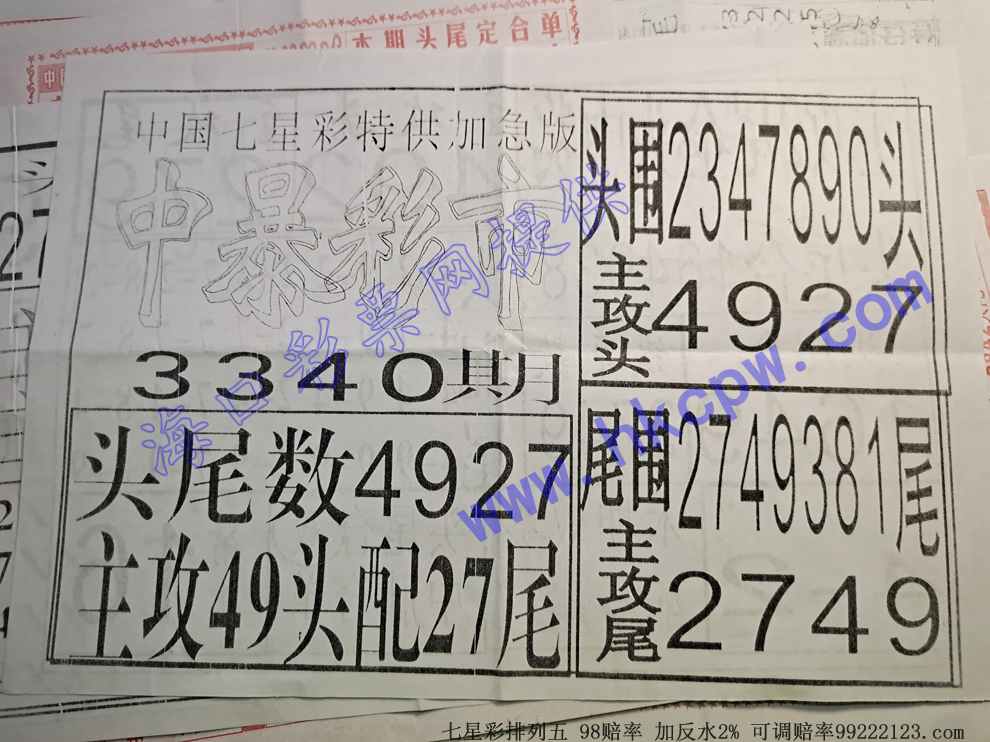 本期头尾定合单
3225
中国七星彩特供加急版
中暴彩市
3340期月
头围2347890头
主攻头4927
头尾数4927
主攻49头配27尾
尾围2749381尾
主攻尾2749
海口彩票网提供
www.hkcpw.com
七星彩排列五 98赔率 加反水2% 可调赔率99222123.com